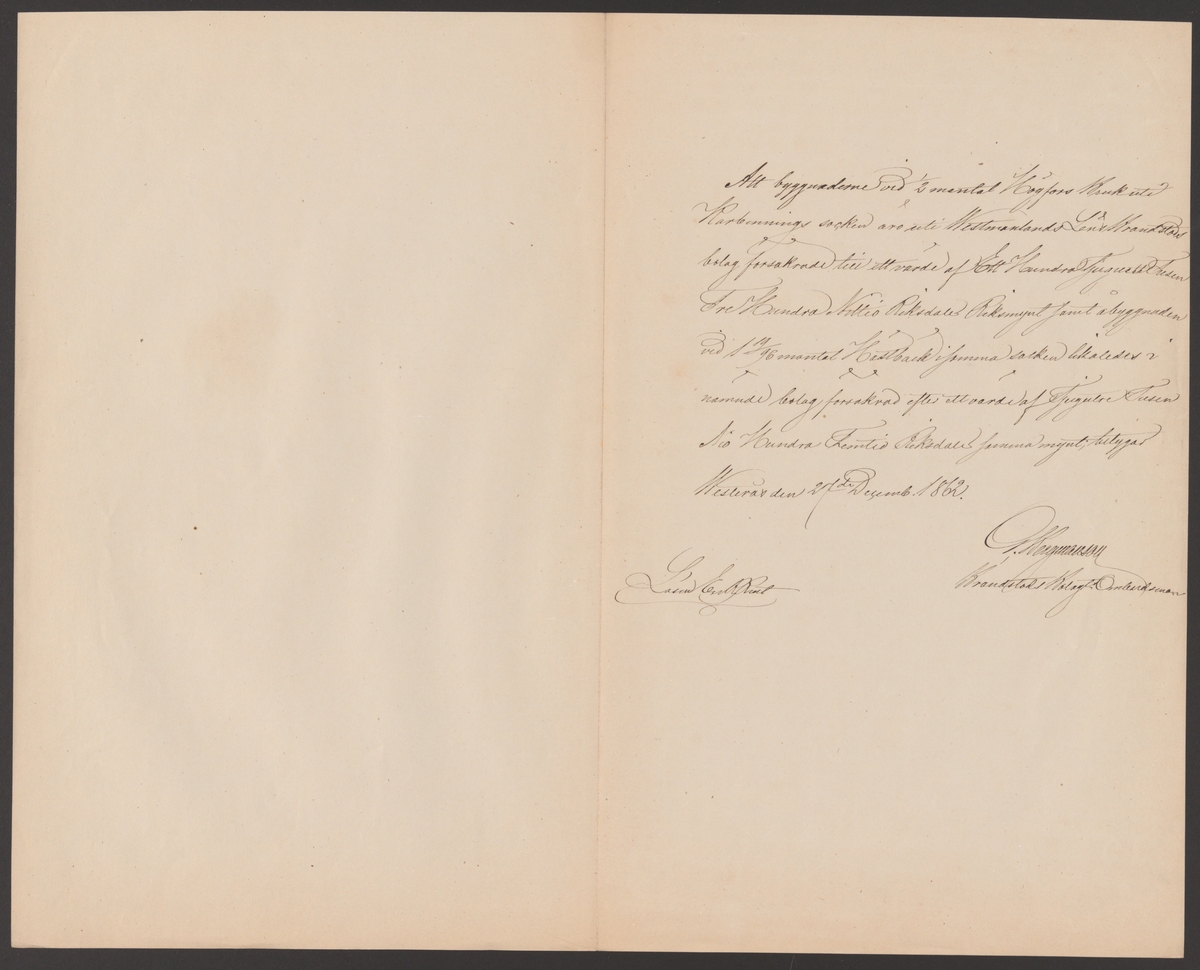 Att byggnaderne vid 1/2 mantal Högfors Bruk uti
Karbennings socken äro uti Westmanlands Läns Brandstods
bolag försäkrade till ett värde af Ett Hundra Tjugu Tusen
Tre Hundra Nittio Riksdaler Riksmynt samt åbyggnaden
vid 1 /96 mantal Hästbäck i samma socken likaledes i
nämnde bolag försäkrad efter ett värde af Tjugutre Tusen
Nio Hundra Femtio Riksdaler samma mynt, betygar
Westerås den 27de Decemb. 1862.
Bergmanson
Brandstods Bolagets Ombudsman
Lösen En Rdr